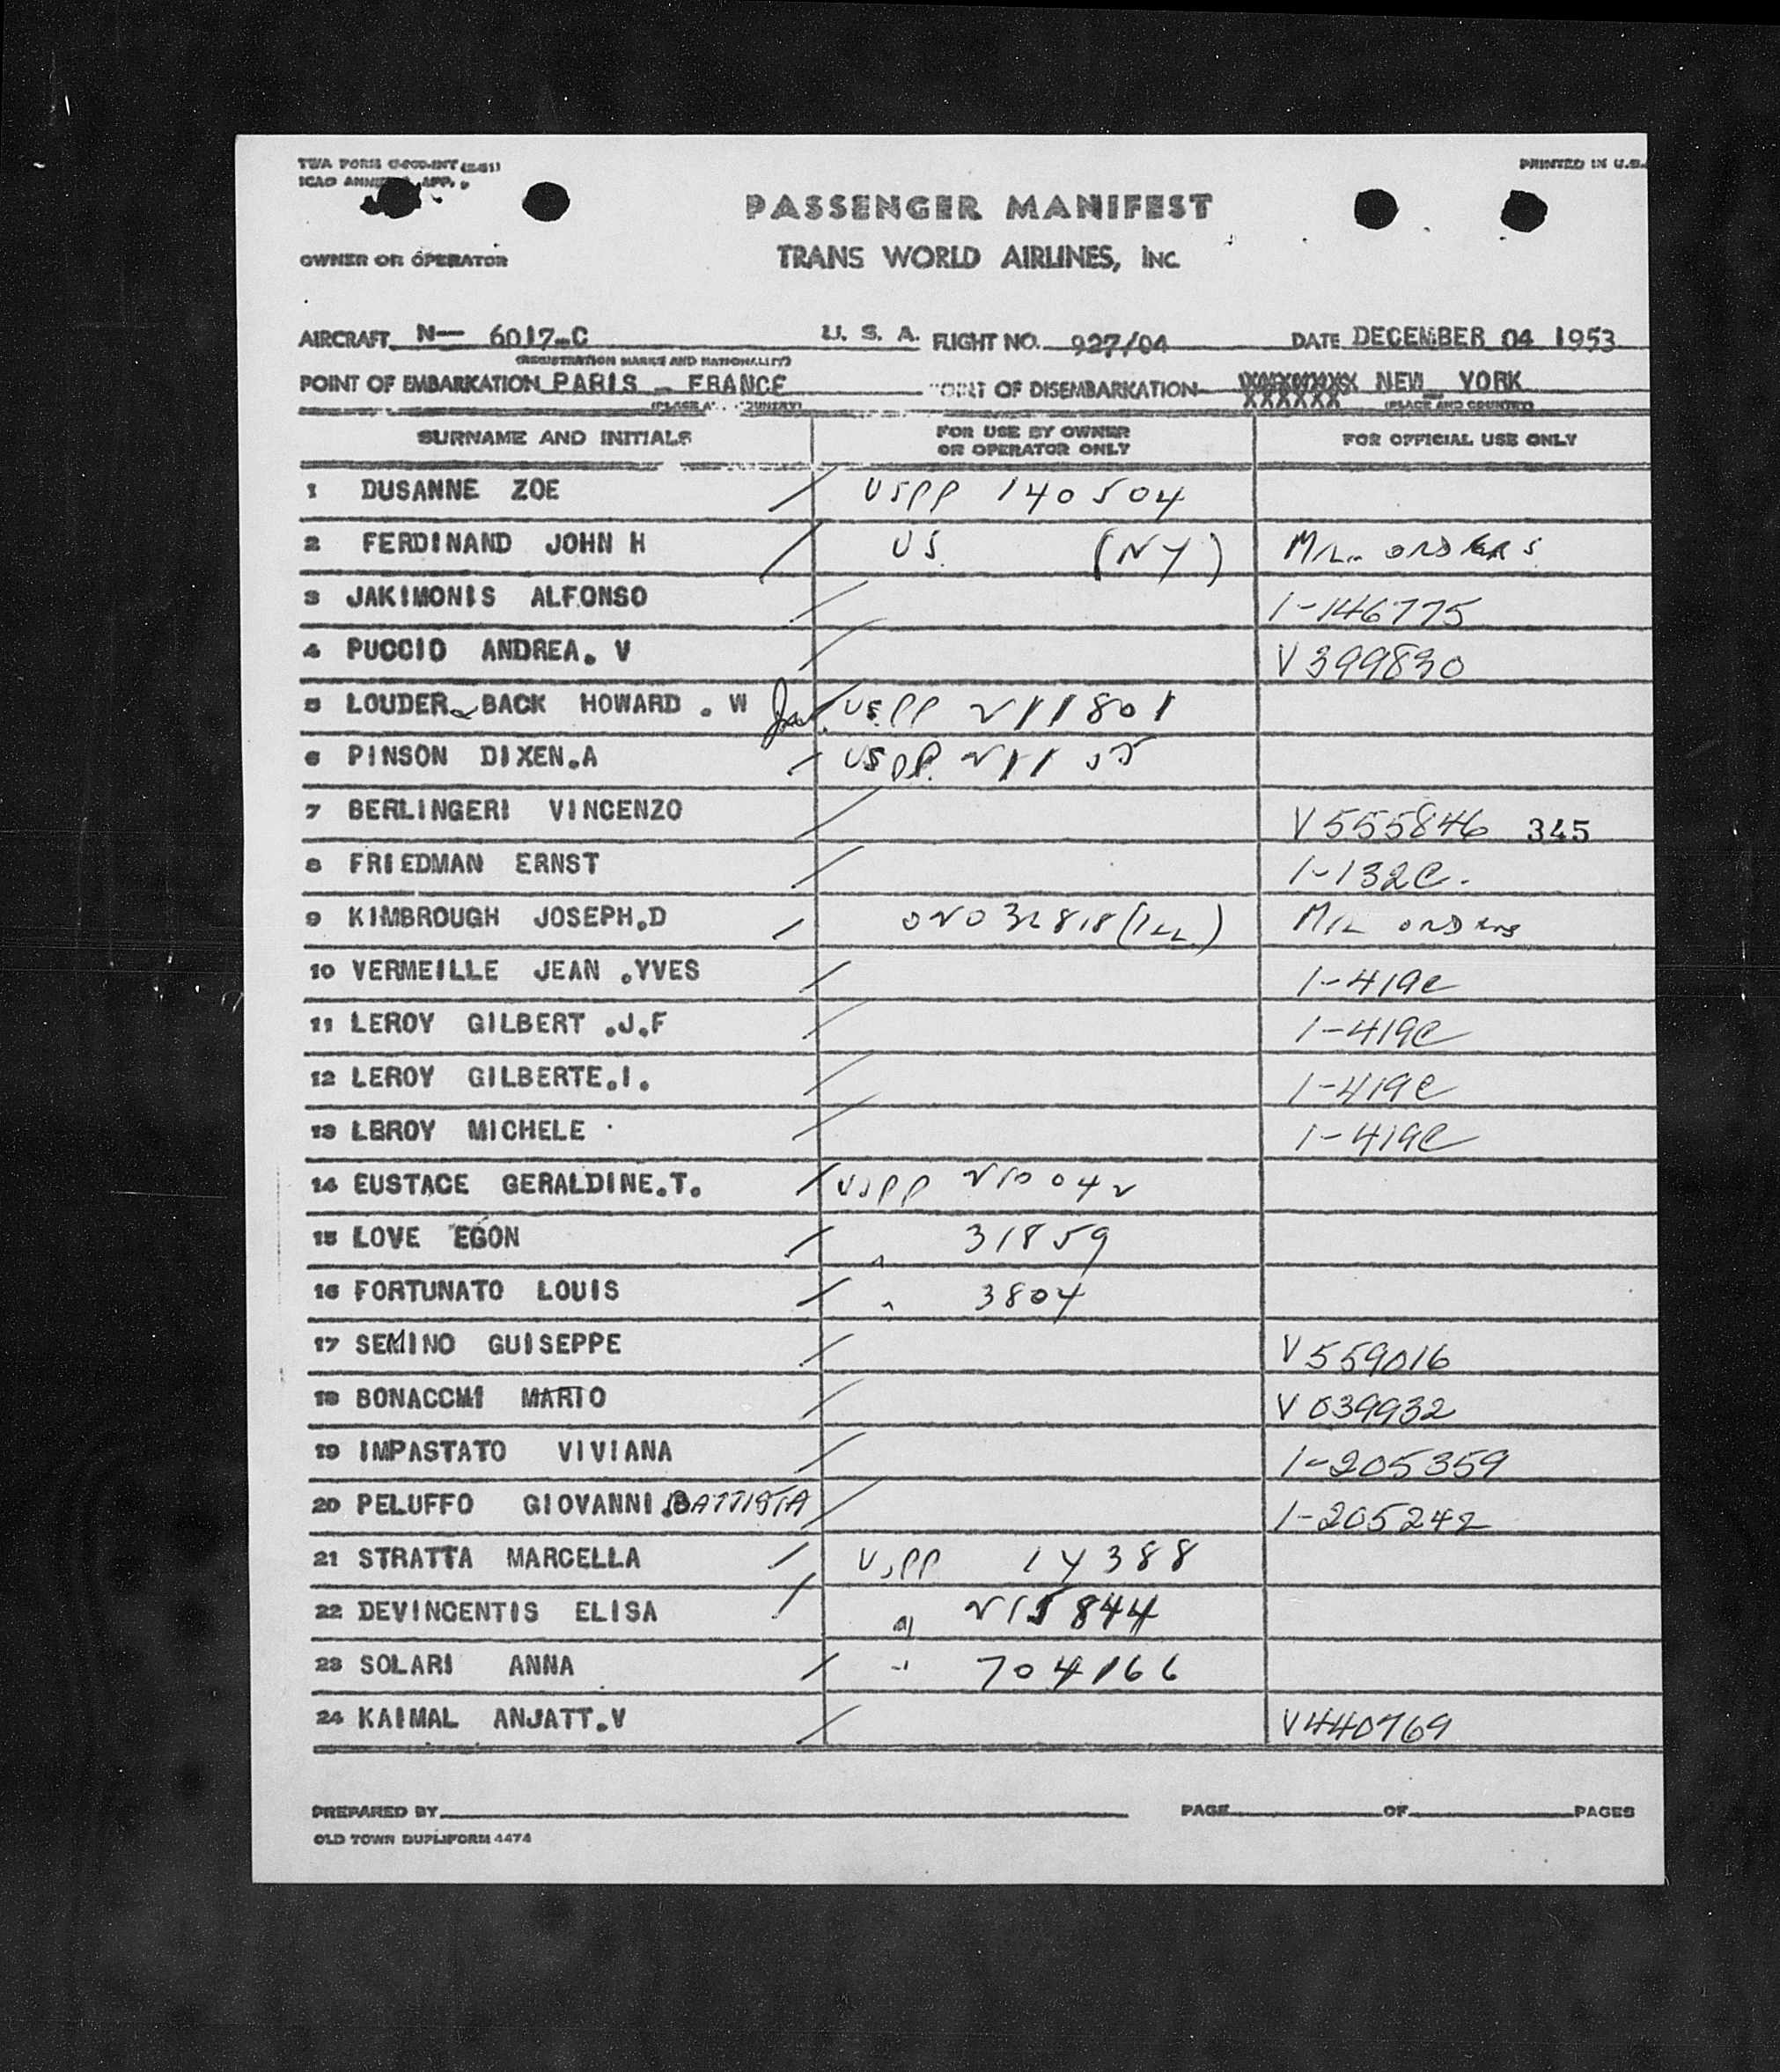 TWA FORM
ICAO ANNEX APP.
PRINTED IN U.S.
PASSENGER MANIFEST
OWNER OR OPERATOR
TRANS WORLD AIRLINES, INC
AIRCRAFT N— 6017-C U. S. A. FLIGHT NO. 927/04 DATE DECEMBER 04 1953
(REGISTRATION MARKS AND NATIONALITY)
POINT OF EMBARKATION PARIS - FRANCE POINT OF DISEMBARKATION NEW YORK
(PLACE AND COUNTRY) (PLACE AND COUNTRY)
SURNAME AND INITIALS FOR USE BY OWNER OR OPERATOR ONLY FOR OFFICIAL USE ONLY
1 DUSANNE ZOE / USPP 140504
2 FERDINAND JOHN H / US. (NY) MIL. ORDERS
3 JAKIMONIS ALFONSO / 1-146775
4 PUCCIO ANDREA. V / V399830
5 LOUDER BACK HOWARD . W / USPP 211801
6 PINSON DIXEN.A / USPP. 211 55
7 BERLINGERI VINCENZO / V555846 345
8 FRIEDMAN ERNST / 1-132C.
9 KIMBROUGH JOSEPH.D / 02032818 (ILL.) MIL ORDERS
10 VERMEILLE JEAN .YVES / 1-419C
11 LEROY GILBERT .J.F / 1-419C
12 LEROY GILBERTE.I. / 1-419C
13 LBROY MICHELE / 1-419C
14 EUSTACE GERALDINE.T. / USPP 210042
15 LOVE EGON / " 31859
16 FORTUNATO LOUIS / " 3804
17 SEMINO GUISEPPE / V559016
18 BONACCHI MARIO / V039932
19 IMPASTATO VIVIANA / 1-205359
20 PELUFFO GIOVANNI.BATTISTA / 1-205242
21 STRATTA MARCELLA / USPP 14388
22 DEVINCENTIS ELISA / " 215844
23 SOLARI ANNA / " 704166
24 KAIMAL ANJATT.V / V440769
PREPARED BY PAGE OF PAGES
OLD TOWN DUPLIFORM 4474